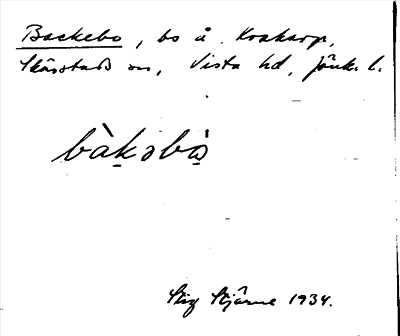 Backebo, bs å Krakarp,
Skärstads sn, Vista hd, Jönk. l.
bàkəbò̤
Stig Stjärne 1934.